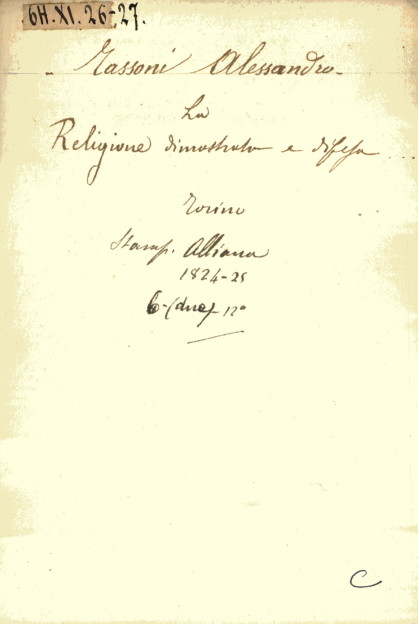 6H.XI.26-27.
Tassoni Alessandro.
La
Religione dimostrata e difesa
Torino
Stamp. Alliana
1824-25
6-(due)- 12°
C